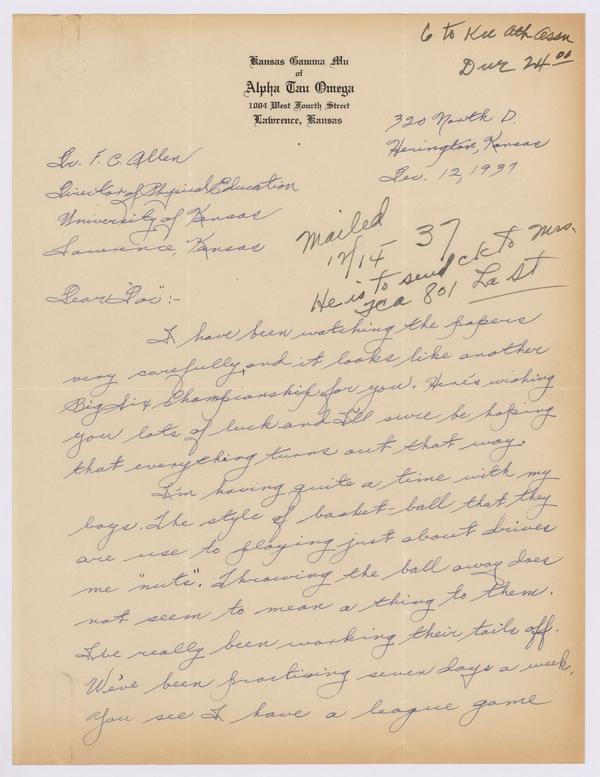 6 to KU Ath Assn
Due 24.00
Kansas Gamma Mu
of
Alpha Tau Omega
1004 West Fourth Street
Lawrence, Kansas
320 North D.
Herington, Kansas
Dec. 12, 1937
Dr. F. C. Allen
Director of Physical Education
University of Kansas
Lawrence, Kansas
Mailed
12/14 37
He is to send ck to Mrs.
FCA 801 La St
Dear "Doc":-
I have been watching the papers
very carefully and it looks like another
Big Six Championship for you. Here's wishing
you lots of luck and I'll sure be hoping
that everything turns out that way.
I'm having quite a time with my
boys. The style of basket-ball that they
are use to playing just about drives
me "nuts". Throwing the ball away does
not seem to mean a thing to them.
I've really been working their tails off.
We've been practising seven days a week.
You see I have a league game